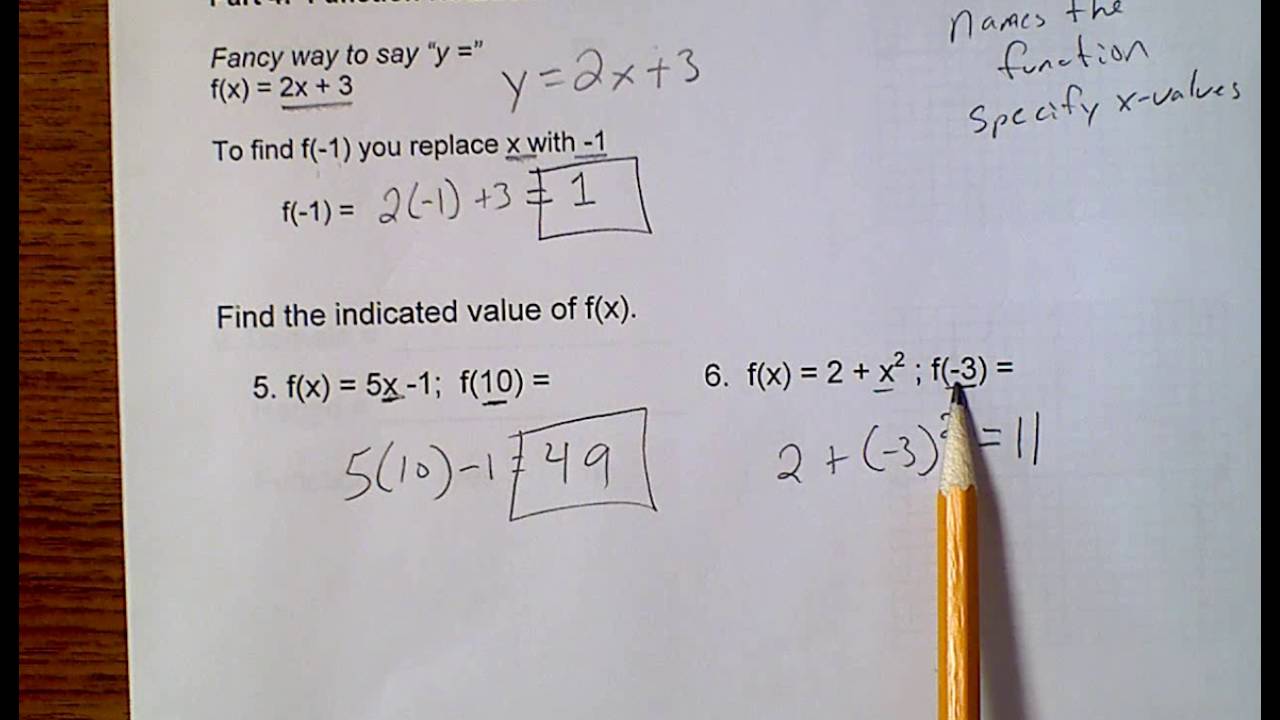 names the
function
specify x-values
Fancy way to say “y =”
f(x) = 2x + 3
y = 2x + 3
To find f(-1) you replace x with -1
f(-1) = 2(-1) + 3 = 1
Find the indicated value of f(x).
5. f(x) = 5x -1; f(10) =
5(10) - 1 = 49
6. f(x) = 2 + x² ; f(-3) =
2 + (-3)² = 11